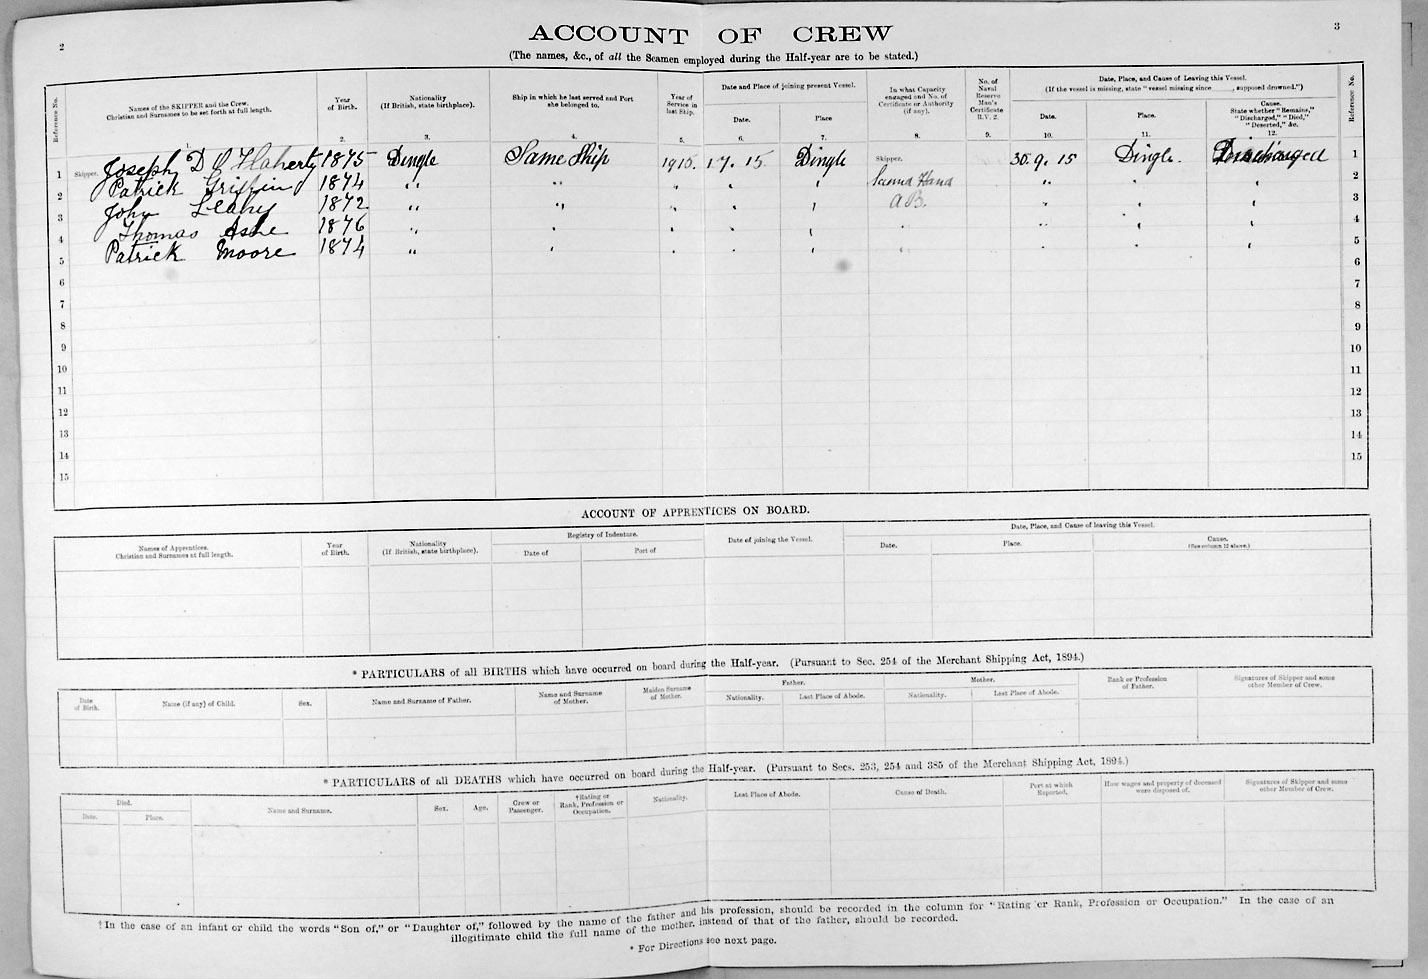 2
3
ACCOUNT OF CREW
(The names, &c., of all the Seamen employed during the Half-year are to be stated.)
Reference No.
Names of the SKIPPER and the Crew.
Christian and Surnames to be set forth at full length.
1.
Year of Birth.
2.
Nationality
(If British, state birthplace).
3.
Ship in which he last served and Port she belonged to.
4.
Year of Service in last Ship.
5.
Date and Place of joining present Vessel.
Date.
6.
Place
7.
In what Capacity engaged and No. of Certificate or Authority (if any).
8.
No. of Naval Reserve Man's Certificate R.V. 2.
9.
Date, Place, and Cause of Leaving this Vessel.
(If the vessel is missing, state "vessel missing since , supposed drowned.")
Date.
10.
Place.
11.
Cause.
State whether "Remains," "Discharged," "Died," "Deserted," &c.
12.
Reference No.
1 Skipper. Joseph D O'Flaherty 1875 Dingle Same Ship 1915. 1.7.15. Dingle Skipper. 30.9.15 Dingle. Discharged 1
2 Patrick Griffin 1874 " " " " " Second Hand " " " 2
3 John Leahy 1872 " " " " " A B. " " " 3
4 Thomas Ashe 1876 " " " " " " " " " 4
5 Patrick Moore 1874 " " " " " " " " " 5
6 6
7 7
8 8
9 9
10 10
11 11
12 12
13 13
14 14
15 15
ACCOUNT OF APPRENTICES ON BOARD.
Names of Apprentices.
Christian and Surnames at full length.
Year of Birth.
Nationality
(If British, state birthplace).
Registry of Indenture.
Date of
Port of
Date of joining the Vessel.
Date, Place, and Cause of leaving this Vessel.
Date.
Place.
Cause.
(See column 12 above.)
* PARTICULARS of all BIRTHS which have occurred on board during the Half-year. (Pursuant to Sec. 254 of the Merchant Shipping Act, 1894.)
Date of Birth.
Name (if any) of Child.
Sex.
Name and Surname of Father.
Name and Surname of Mother.
Maiden Surname of Mother.
Father.
Nationality.
Last Place of Abode.
Mother.
Nationality.
Last Place of Abode.
Rank or Profession of Father.
Signatures of Skipper and some other Member of Crew.
* PARTICULARS of all DEATHS which have occurred on board during the Half-year. (Pursuant to Secs. 253, 254 and 385 of the Merchant Shipping Act, 1894.)
Died.
Date.
Place.
Name and Surname.
Sex.
Age.
Crew or Passenger.
†Rating or Rank, Profession or Occupation.
Nationality.
Last Place of Abode.
Cause of Death.
Port at which Reported.
How wages and property of deceased were disposed of.
Signatures of Skipper and some other Member of Crew.
†In the case of an infant or child the words "Son of," or "Daughter of," followed by the name of the father and his profession, should be recorded in the column for "Rating or Rank, Profession or Occupation." In the case of an
illegitimate child the full name of the mother, instead of that of the father, should be recorded.
* For Directions see next page.